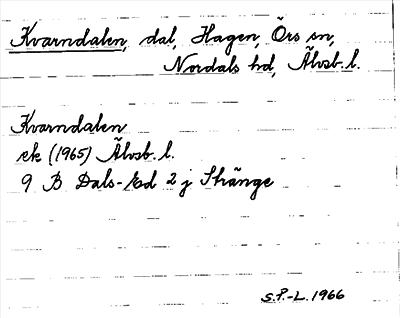 Kvarndalen, dal, Hagen, Örs sn,
Nordals hd, Älvsb. l.
Kvarndalen
ek (1965) Älvsb. l.
9 B Dals-Ed 2 j Stränge
S.P.-L. 1966